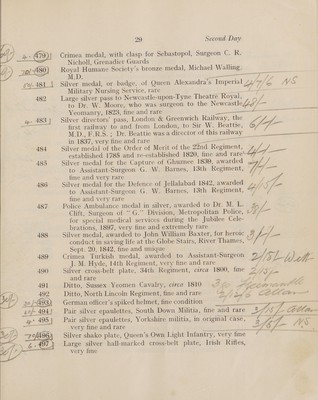 29
Second Day
479 Crimea medal, with clasp for Sebastopol, Surgeon C. R.
Nicholl, Grenadier Guards
480 Royal Humane Society's bronze medal, Michael Walling,
M.D.
481 Silver medal, or badge, of Queen Alexandra's Imperial
Military Nursing Service, rare
482 Large silver pass to Newcastle-upon-Tyne Theatre Royal,
to Dr. W. Moore, who was surgeon to the Newcastle
Yeomanry, 1823, fine and rare
483 Silver directors' pass, London & Greenwich Railway, the
first railway to and from London, to Sir W. Beattie,
M.D., F.R.S.; Dr. Beattie was a director of this railway
in 1837, very fine and rare
484 Silver medal of the Order of Merit of the 22nd Regiment,
established 1785 and re-established 1820, fine and rare
485 Silver medal for the Capture of Ghuznee 1839, awarded
to Assistant-Surgeon G. W. Barnes, 13th Regiment,
fine and very rare
486 Silver medal for the Defence of Jellalabad 1842, awarded
to Assistant-Surgeon G. W. Barnes, 13th Regiment,
fine and very rare
487 Police Ambulance medal in silver, awarded to Dr. M. L.
Clift, Surgeon of "G." Division, Metropolitan Police,
for special medical services during the Jubilee Cele-
brations, 1897, very fine and extremely rare
488 Silver medal, awarded to John William Baxter, for heroic
conduct in saving life at the Globe Stairs, River Thames,
Sept. 20, 1842, fine and unique
489 Crimea Turkish medal, awarded to Assistant-Surgeon
J. M. Hyde, 14th Regiment, very fine and rare
490 Silver cross-belt plate, 34th Regiment, circa 1800, fine
and rare
491 Ditto, Sussex Yeomen Cavalry, circa 1810
492 Ditto, North Lincoln Regiment, fine and rare
493 German officer's spiked helmet, fine condition
494 Pair silver epaulettes, South Down Militia, fine and rare
495 Pair silver epaulettes, Yorkshire militia, in original case,
very fine and rare
496 Silver shako plate, Queen's Own Light Infantry, very fine
497 Large silver hall-marked cross-belt plate, Irish Rifles,
very fine